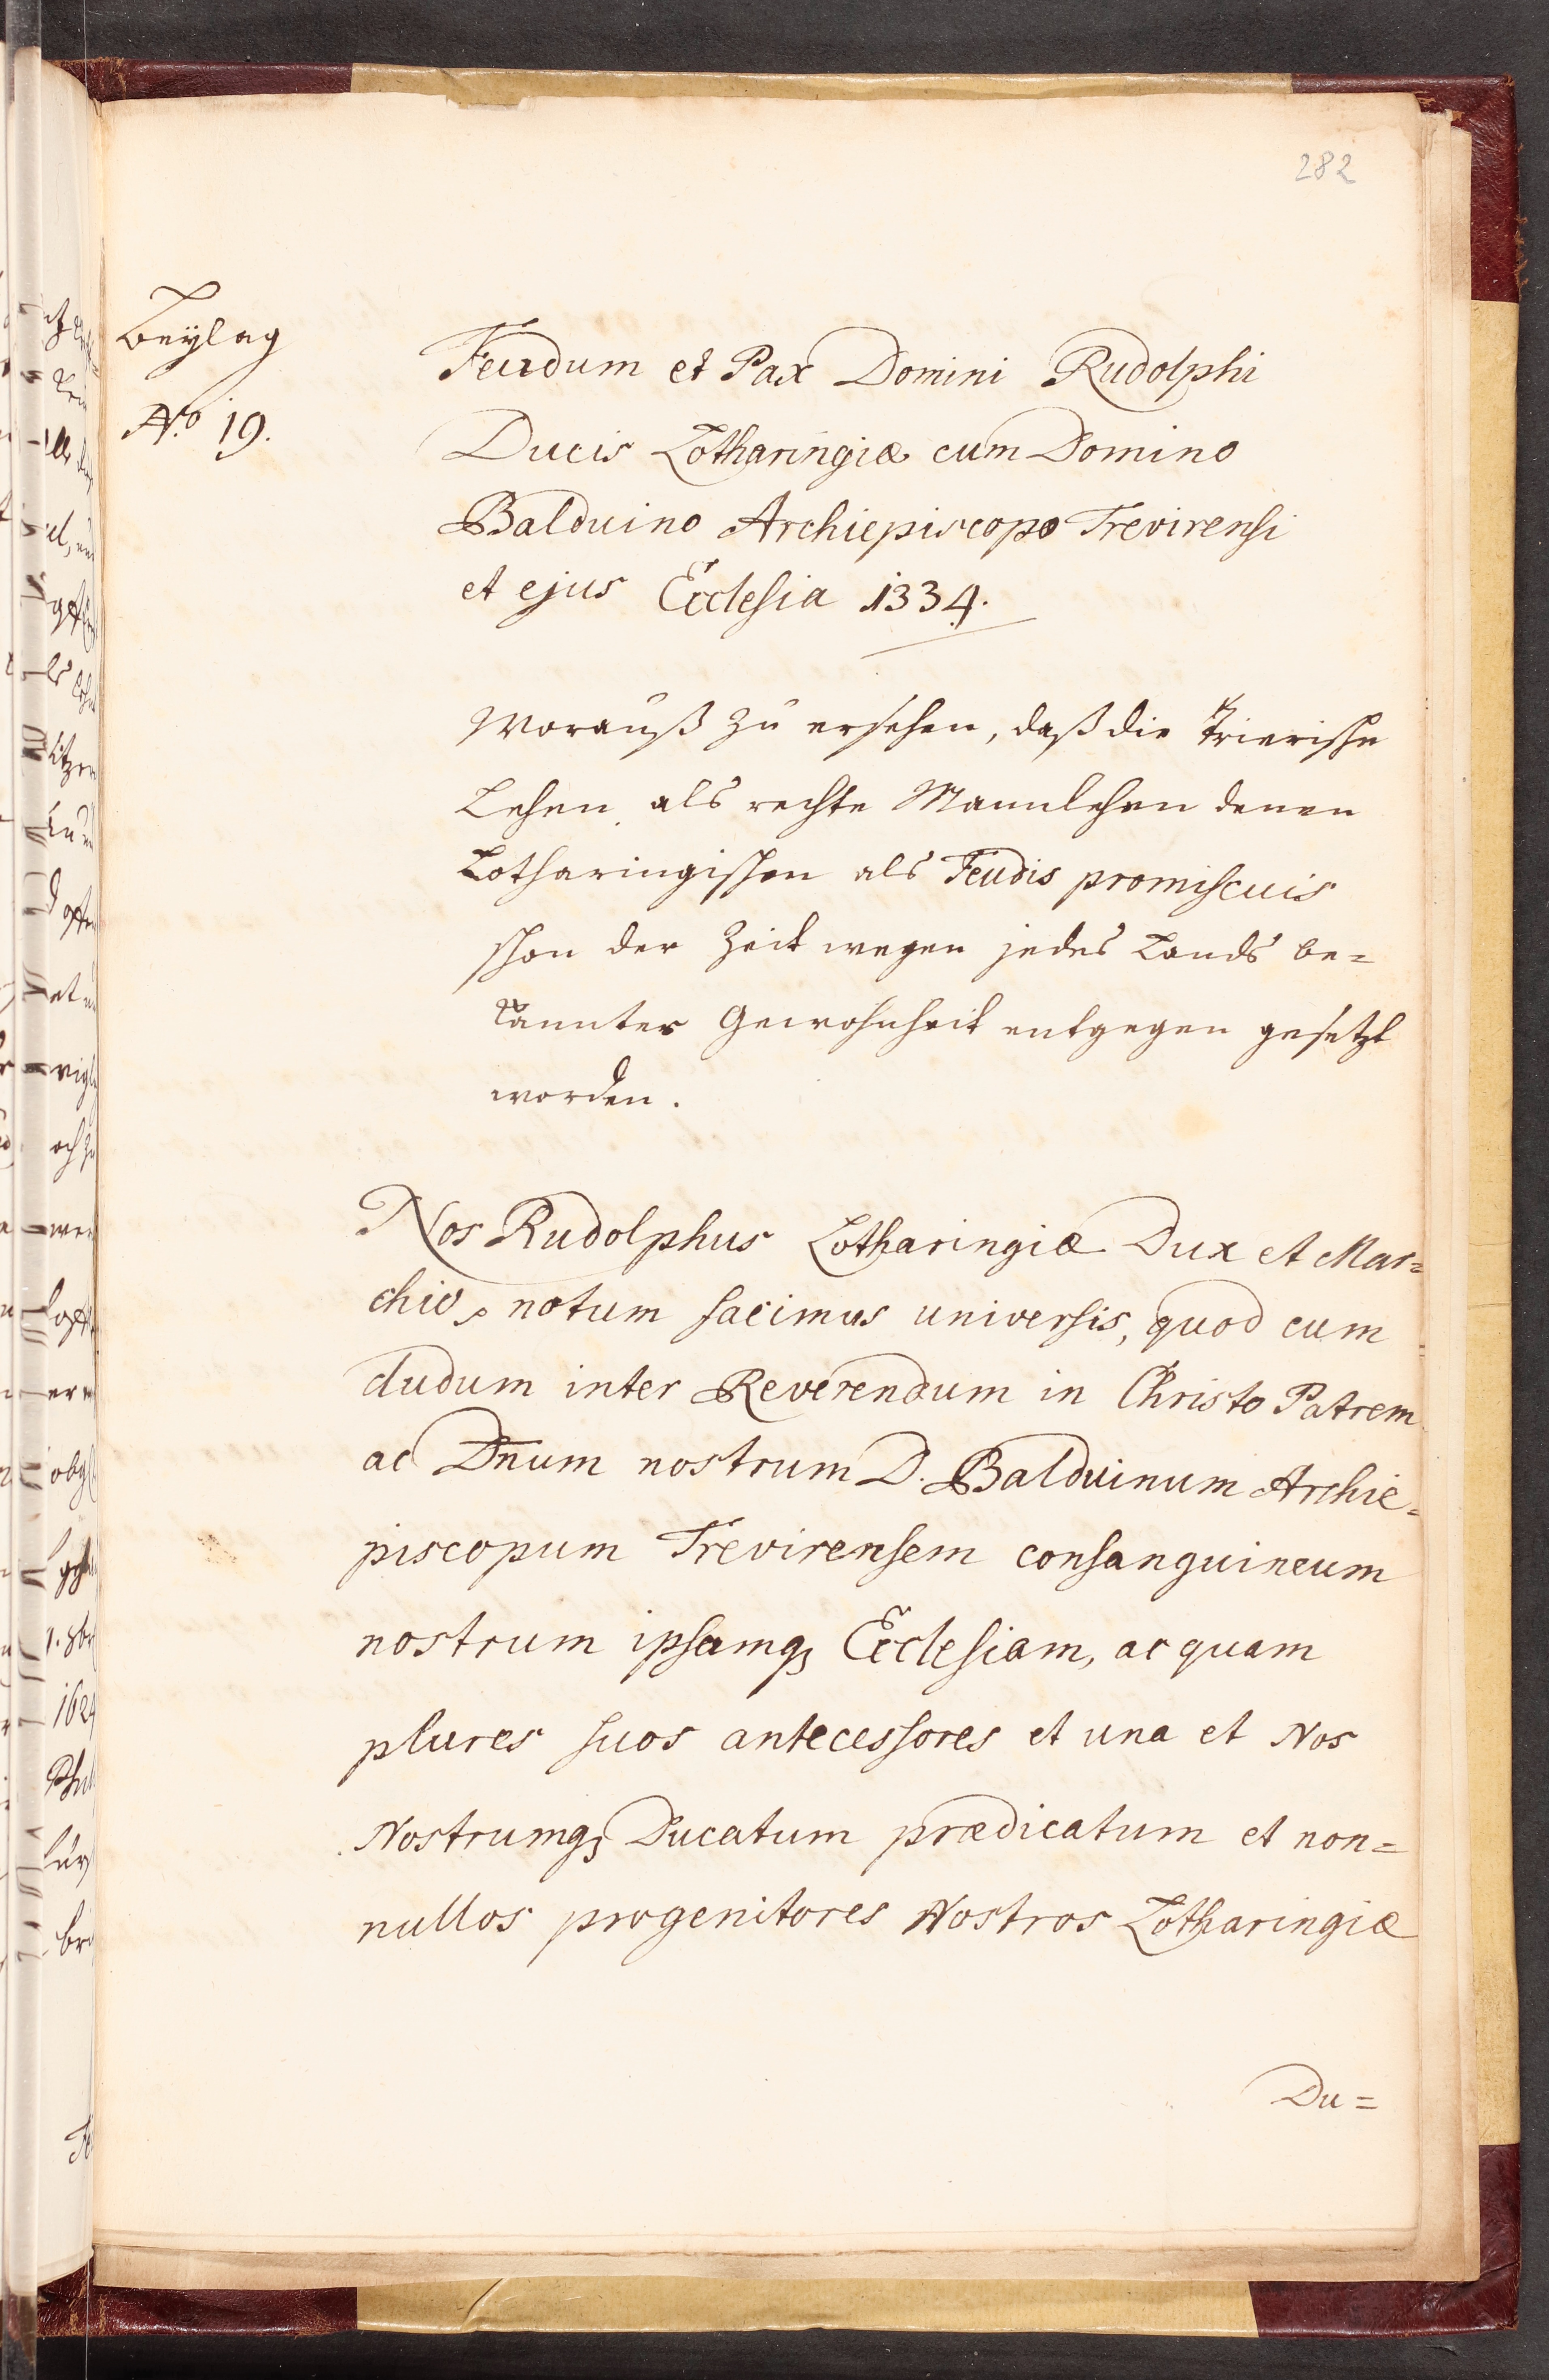 282
Beÿlag
No. 19.
Feudum et Pax Domini Rudolphi
Ducis Lotharingiæ cum Domino
Balduino Archiepiscopo Trevirensi
et ejus Ecclesia 1334.
Worauß zu ersehen, daß die Trierische
Lehen als rechte Mannlehen denen
Lotharingischen als Feudis promiscuis
schon der Zeit wegen jedes Lands be=
kannter Gewohnheit entgegen gesetzt
worden.
Nos Rudolphus Lotharingiæ Dux et Mar=
chio, notum facimus universis, quod cum
dudum inter Reverendum in Christo Patrem
ac Dn̄um nostrum D. Balduinum Archie=
piscopum Trevirensem consanguineum
nostrum ipsamq; Ecclesiam, ac quam
plures suos antecessores et una et Nos
Nostrumq; Ducatum prædicatum et non=
nullos progenitores Nostros Lotharingiæ
Du=